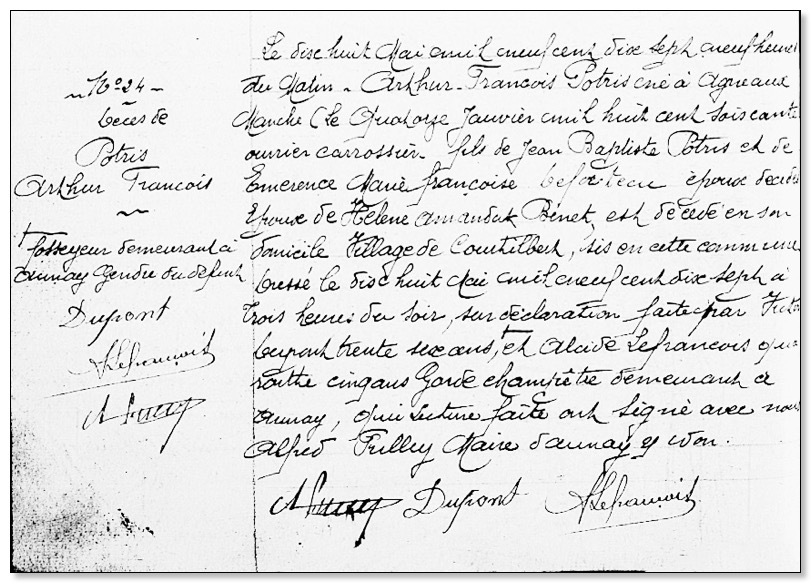 N° 24
Décès de
Potris
Arthur François
+ fossoyeur demeurant à
aunay gendre du défunt
Dupont
ALefrançois
Le dix huit Mai mil neuf cent dix sept neuf heures
du Matin - Arthur - François Potris né à Agneaux
Manche (le Quatorze Janvier mil huit cent soixante
ouvrier carrossier. fils de Jean Baptiste Potris et de
Emerence Marie françoise époux décédés
Epoux de Hélène Amanda Binet, est décédé en son
domicile Village de Courtilbert, sis en cette commune
le dix huit Mai mil neuf cent dix sept à
trois heures du soir, sur déclaration faite par
Dupont trente six ans, + et Alcide Lefrancois
cinq ans Garde champêtre demeurant à
aunay, qui Lecture faite ont signé avec nous
Alfred Maire d'aunay
Dupont ALefrançois